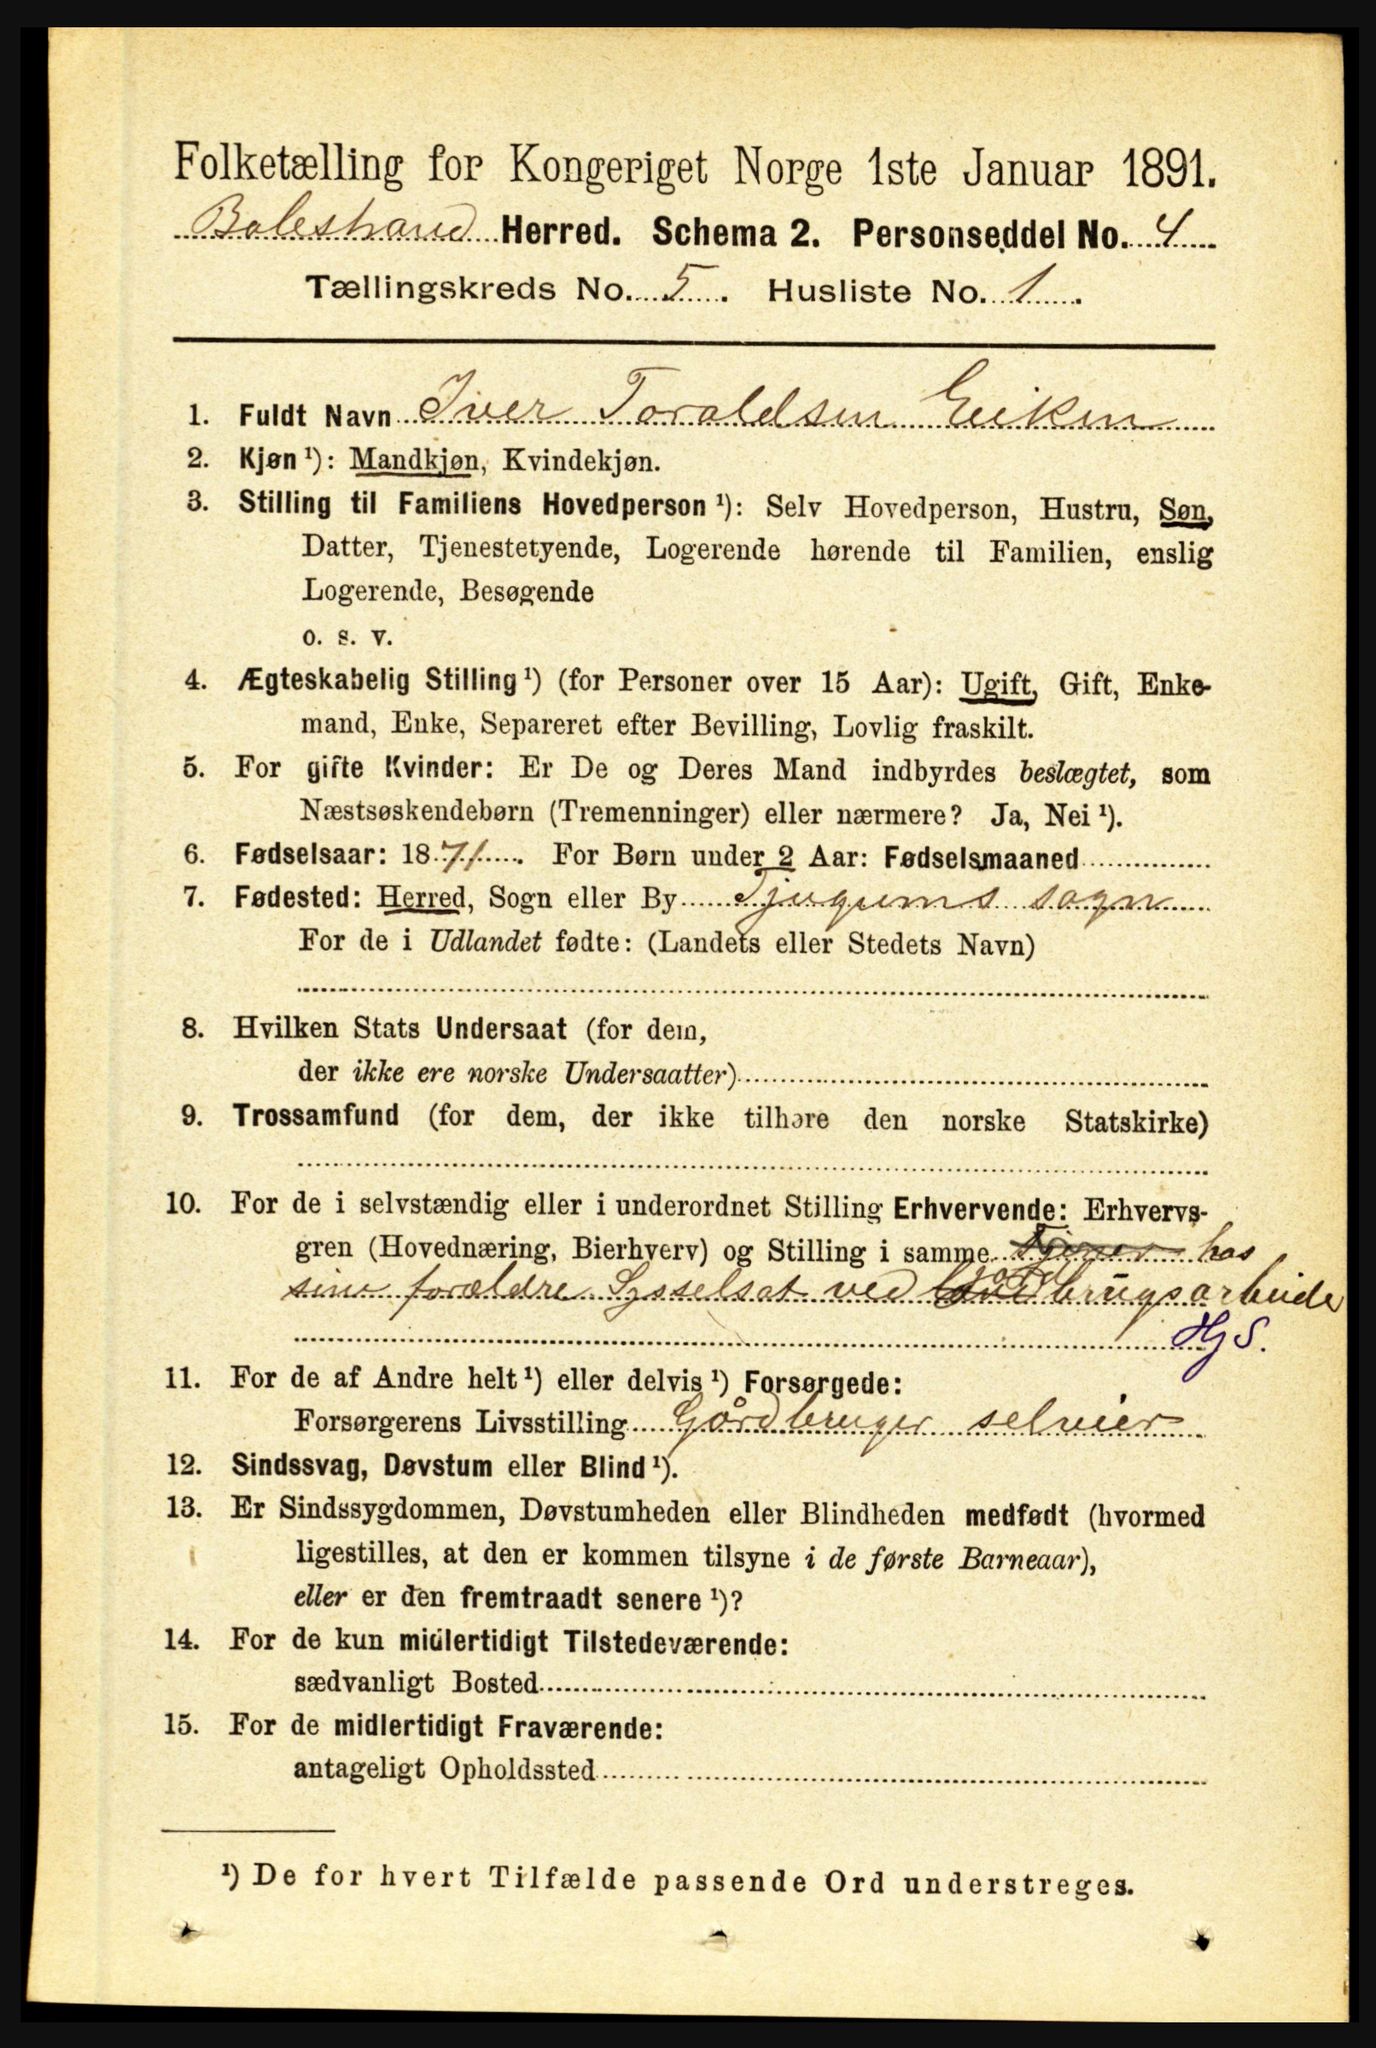 Folketælling for Kongeriget Norge 1ste Januar 1891.
Balestrand Herred. Schema 2. Personseddel No. 4
Tællingskreds No. 5. Husliste No. 1.
1. Fuldt Navn Iver Toraldsen Eiken
2. Kjøn ¹): Mandkjøn, Kvindekjøn.
3. Stilling til Familiens Hovedperson ¹): Selv Hovedperson, Hustru, Søn,
Datter, Tjenestetyende, Logerende hørende til Familien, enslig
Logerende, Besøgende
o. s. v.
4. Ægteskabelig Stilling ¹) (for Personer over 15 Aar): Ugift, Gift, Enke-
mand, Enke, Separeret efter Bevilling, Lovlig fraskilt.
5. For gifte Kvinder: Er De og Deres Mand indbyrdes beslægtet, som
Næstsøskendebørn (Tremenninger) eller nærmere? Ja, Nei ¹).
6. Fødselsaar: 1871. For Børn under 2 Aar: Fødselsmaaned
7. Fødested: Herred, Sogn eller By Tjugums sogn
For de i Udlandet fødte: (Landets eller Stedets Navn)
8. Hvilken Stats Undersaat (for dem,
der ikke ere norske Undersaatter)
9. Trossamfund (for dem, der ikke tilhøre den norske Statskirke)
10. For de i selvstændig eller i underordnet Stilling Erhvervende: Erhvervs-
gren (Hovednæring, Bierhverv) og Stilling i samme Tjener hos
sine forældre Sysselsat ved jordbrugsarbeide
HjS.
11. For de af Andre helt ¹) eller delvis ¹) Forsørgede:
Forsørgerens Livsstilling Gårdbruger selveier
12. Sindssvag, Døvstum eller Blind ¹).
13. Er Sindssygdommen, Døvstumheden eller Blindheden medfødt (hvormed
ligestilles, at den er kommen tilsyne i de første Barneaar),
eller er den fremtraadt senere ¹)?
14. For de kun midlertidigt Tilstedeværende:
sædvanligt Bosted
15. For de midlertidigt Fraværende:
antageligt Opholdssted
¹) De for hvert Tilfælde passende Ord understreges.